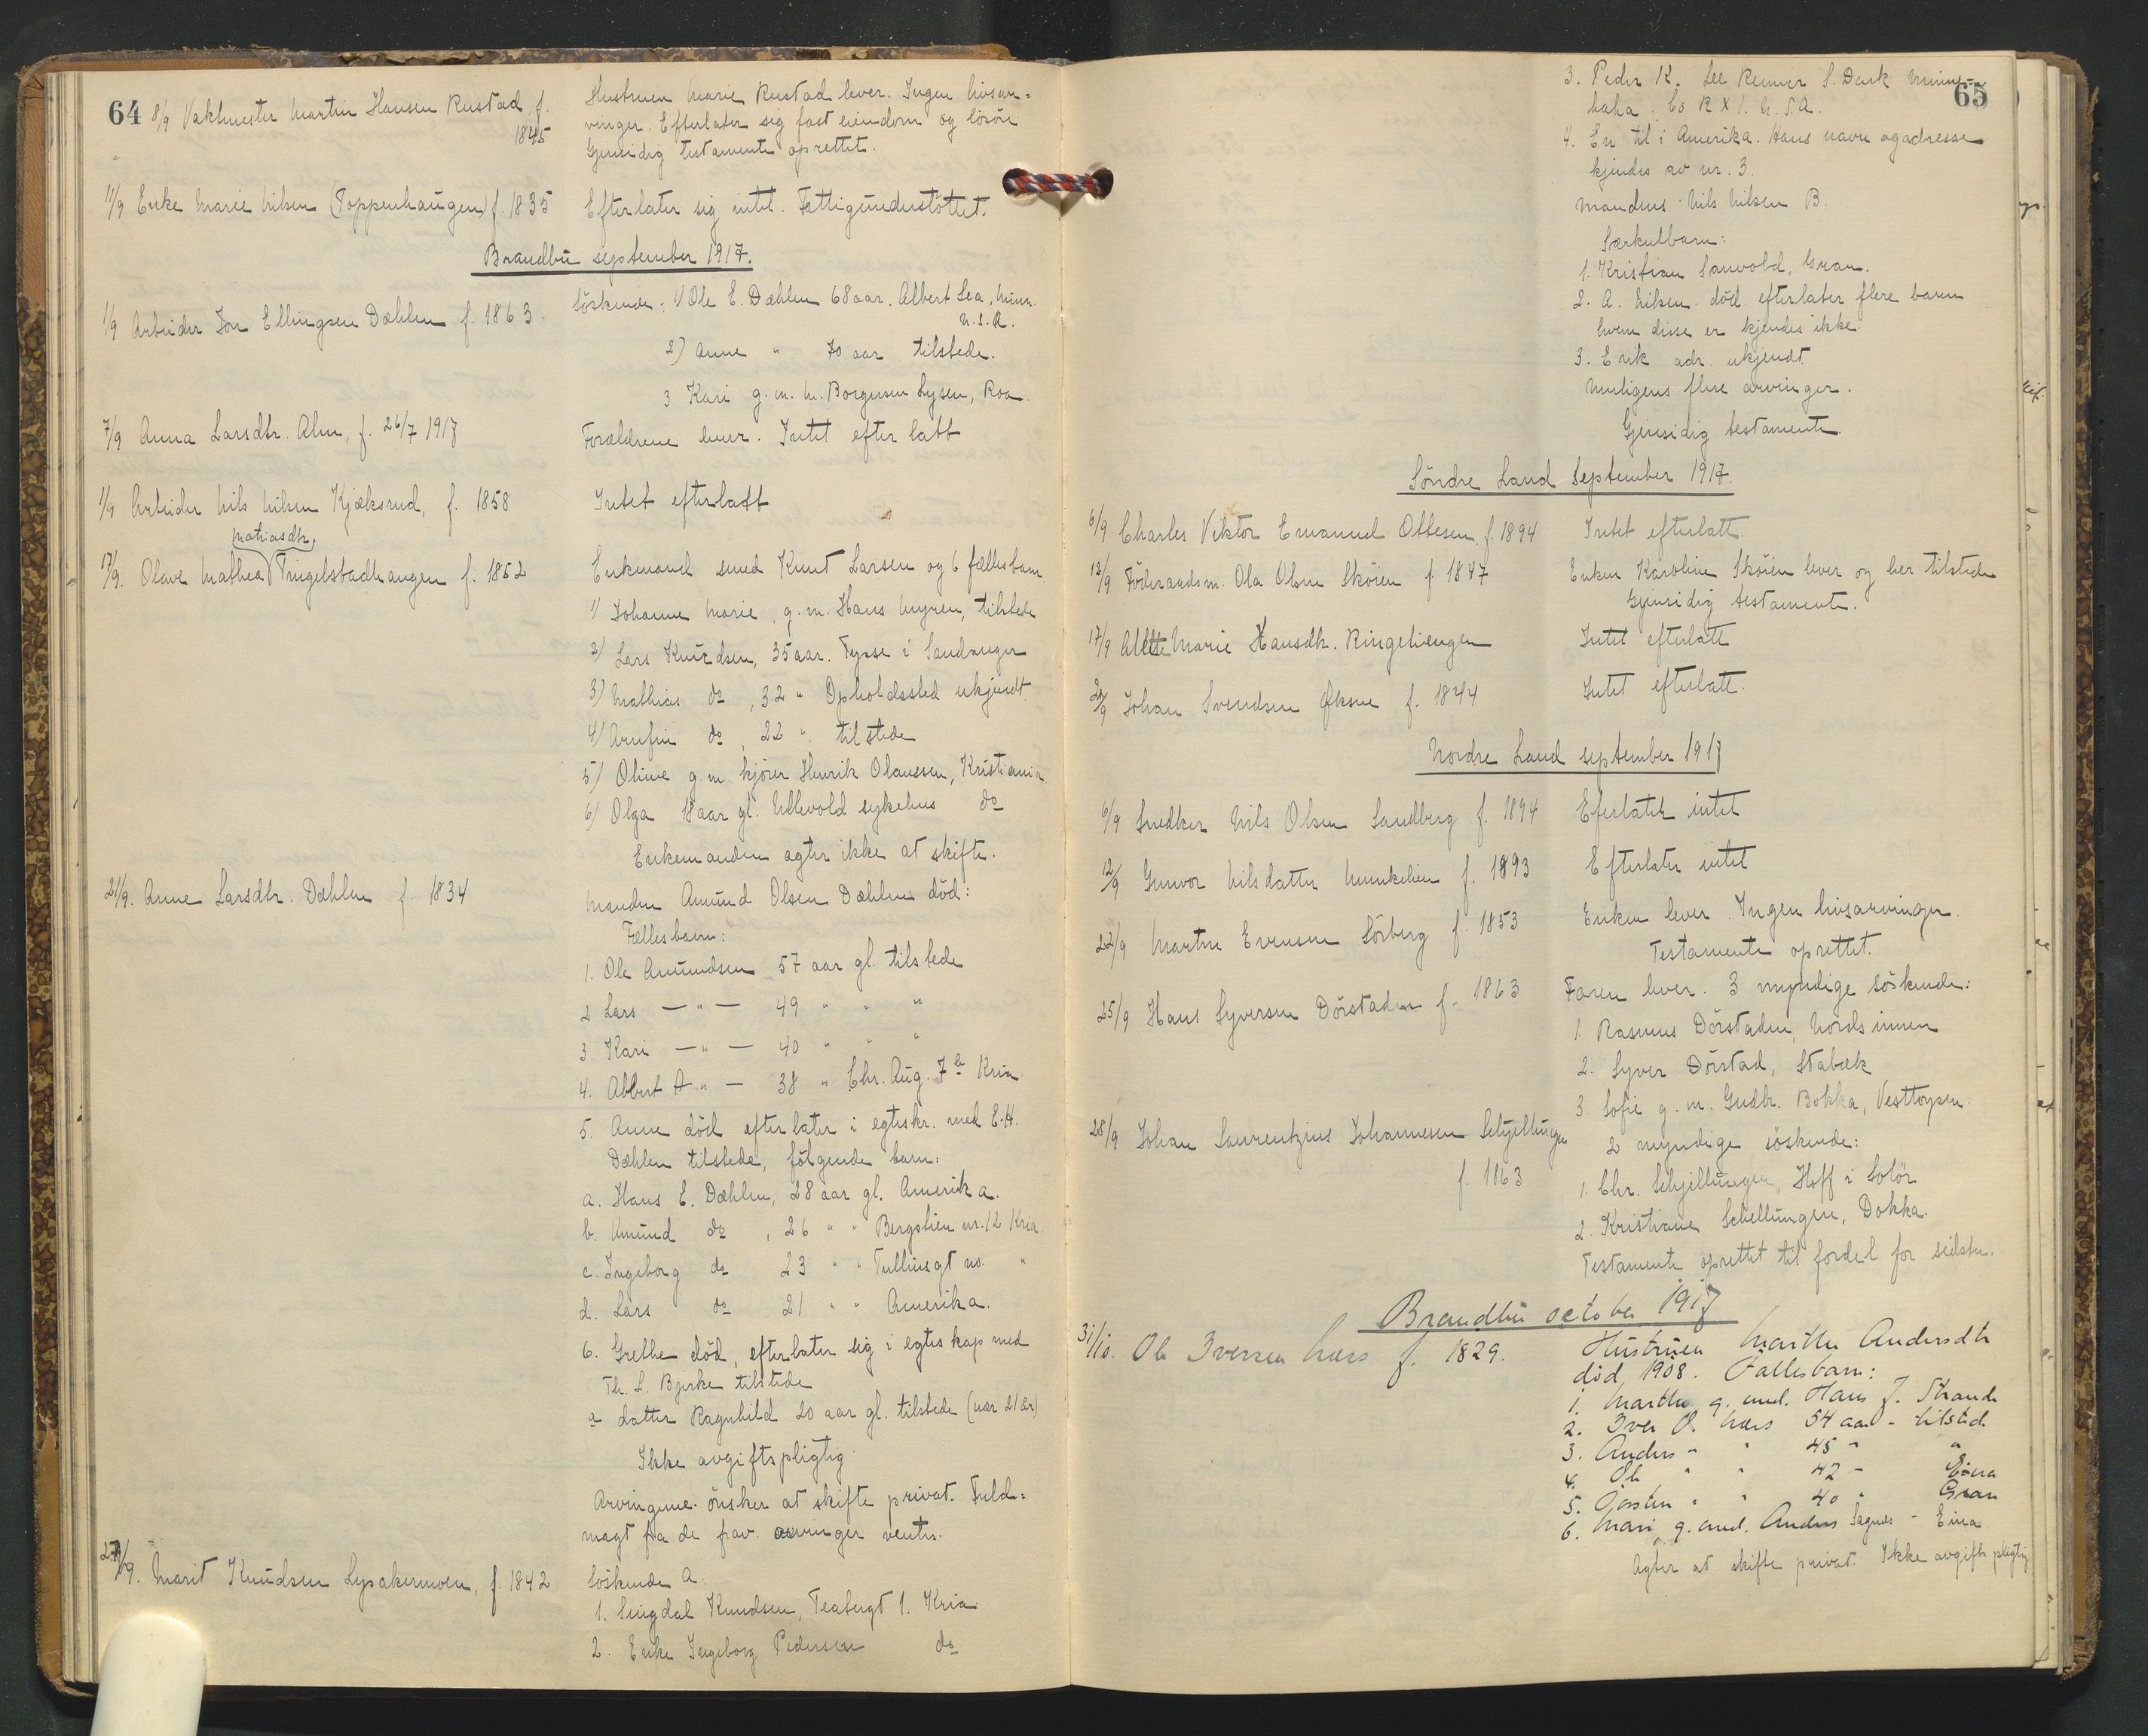 64
8/9 Vaktmester Martin Hansen Rustad f. 1845
Hustruen Marie Rustad lever. Ingen livsar=
vinger. Efterlater sig fast eiendom og lösöre
Gjensidig testamente oprettet.
11/9 Enke Marie Nilsen (Toppenhaugen) f. 1835
Efterlater sig intet. Fattigunderstöttet.
Brandbu september 1917.
1/9 Arbeider Jon Ellingsen Dæhlen f. 1863
Söskende: 1) Ole E. Dæhlen 68 aar. Albert Lea, Minn.
U.S.A.
2) Anne " 70 aar tilstede.
3 Kari g.m. M. Borgersen Lysen, Roa
7/9 Anna Larsdtr. Alm, f. 26/7 1917
Forældrene lever. Intet efterlatt
1/9 Arbeider Nils Nilsen Kjæksrud, f. 1858
Intet efterlatt
17/9. Olave Mathea Matiasdtr, Tingelstadhaugen f. 1852
Enkemand smed Knut Larsen og 6 fællesbarn
1) Johanne Marie, g.m. Hans Myren, tilstede
2) Lars Knudsen, 35 aar. Tysse i Samnanger
3) Mathias do, 32 " Opholdssted ukjendt
4) Arnfin do, 22 " tilstede
5) Oline g.m. kjörer Henrik Olaussen, Kristiania
6) Olga 18 aar gl. Ullevold sykehus do
Enkemanden agter ikke at skifte.
21/9. Anne Larsdtr. Dæhlen f. 1834
Manden Amund Olsen Dæhlen död:
Fællesbarn:
1. Ole Amundsen 57 aar gl. tilstede
2 Lars — " — 49 " " "
3. Kari — " — 40 " " "
4. Albert A " — 38 " Chr. Aug. 7 b Kria
5. Anne död efterlater i egtesk. med E.H.
Dæhlen tilstede, fölgende barn:
a. Hans E. Dæhlen, 28 aar gl. Amerika.
b. Amund do, 26 " " Bergslien nr. 12 Kria
c. Ingeborg do 23 " " Tullinsgt no. "
d. Lars do 21 " " Amerika.
6. Grethe död, efterlater sig i egteskap med
Th. L. Bjerke tilstede
a datter Ragnhild 20 aar gl. tilstede (nær 21 år)
Ikke avgiftspligtig
Arvingene önsker at skifte privat. Fuld=
magt fra de frav. arvinger ventes.
27/9. Marit Knudsen Lysakermoen, f. 1842
Söskende A.
1. Singdal Knudsen, Teatergt 1. Kria
2. Enke Ingeborg Pedersen do
65
3. Peder K. Lee Renner S. Dark
haha. Co R X 1. U.S.A.
4. En til i Amerika. Hans navn og adresse
kjendes av nr. 3.
Mandens Nils Nilsen B.
Særkulbarn:
1. Kristian Sanvold, Gran.
2. A. Nilsen död efterlater flere barn
hvem disse er kjendes ikke.
3. Erik adr. ukjendt
Muligens flere arvinger.
Gjensidig testamente.
Söndre Land September 1917.
6/9 Charles Viktor Emanuel Ottesen, f. 1894
Intet efterlatt
12/9 Föderaadsm. Ola Olsen Sköien f. 1847
Enken Karoline Sköien lever og her tilstede
Gjensidig testamente.
17/9 Allette Marie Hansdtr. Ringeliengen
Intet efterlatt
Johan Svendsen Øksne f. 1844
Intet efterlatt.
Nordre Land september 1917
6/9 Snedker Nils Olsen Sandberg f. 1894
Efterlater intet
12/9 Gunvor Nilsdatter Munkelien f. 1893
Efterlater intet
22/9 Martin Evensen Sörberg f. 1853
Enken lever. Ingen livsarvinger.
Testamente oprettet.
25/9 Hans Syversen Dörstaden f. 1863
Faren lever. 3 myndige söskende:
1. Rasmus Dörstaden, Nordsinnen
2. Syver Dörstad, Stabæk
3. Sofie g.m. Gudbr. Bakka, Vesttorpen.
28/9 Johan Laurentzius Johannesen Schjellungen
f. 1863
2 myndige söskende:
1. Chr. Schjellungen, Hoff i Solör
2. Kristiane Schellungen, Dokka.
Testamente oprettet til fordel for sidste.
Brandbu october 1917
31/10. Ole Iversen Næs f. 1829.
Hustruen Marthe Andersdtr
död 1908. Fællesbarn:
1. Marthe g. med. Hans J. Strande
2. Iver O. Næs 54 aar - tilsted
3. Anders " " 45 " "
4. Ole " " 42 - Eina
5. Torsten " " 40 " Gran
6. Mari g. med. Anders Sagnes - Eina
Agter at skifte privat. Ikke avgiftspligtig